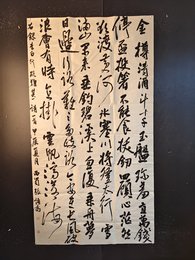 金樽清酒斗十千玉盤珍羞直萬錢
停杯投箸不能食拔劍四顧心茫然
欲渡黃河冰塞川將登太行雪
滿山閑來垂釣碧溪上忽復乘舟夢
日邊行路難多歧路今安在長風破
浪會有時直掛雲帆濟滄海
右錄李白行路難其一詩甲辰夏月